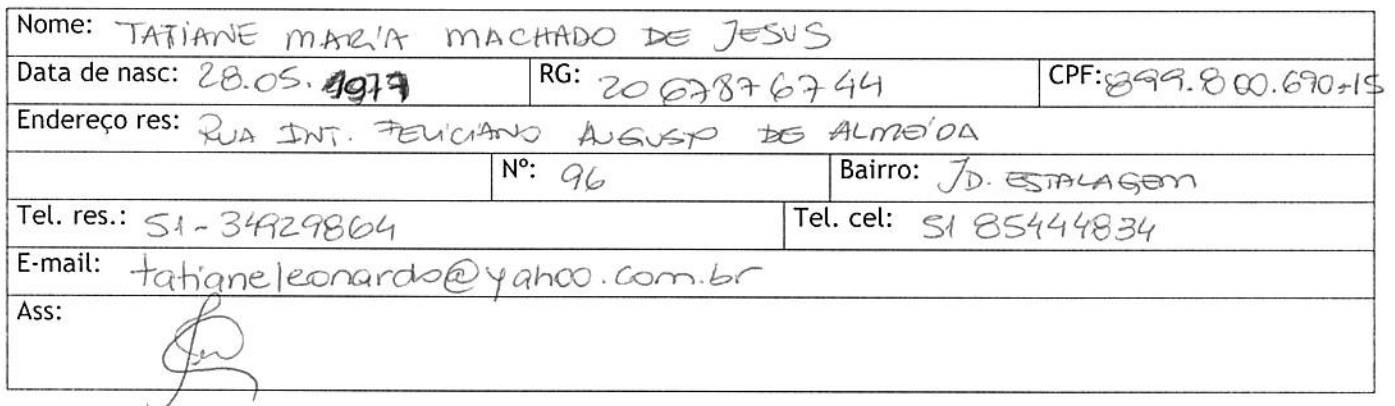 Nome: TATIANE MARIA MACHADO DE JESUS
Data de nasc: 28.05.1977 RG: 2067876744 CPF: 899.800.690-15
Endereço res: RUA INT. FELICIANO AUGUSTO DE ALMEIDA
Nº: 96 Bairro: JD. ESTALAGEM
Tel. res.: 51-34929864 Tel. cel: 51 85444834
E-mail: tatianeleonardo@yahoo.com.br
Ass: